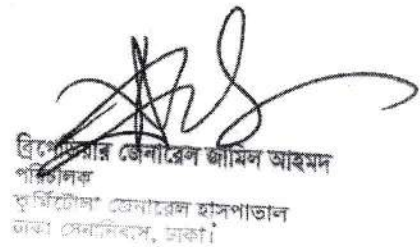 ব্রিগেডিয়ার জেনারেল জামিল আহমদ
পরিচালক
কুর্মিটোলা জেনারেল হাসপাতাল
ঢাকা সেনানিবাস, ঢাকা।